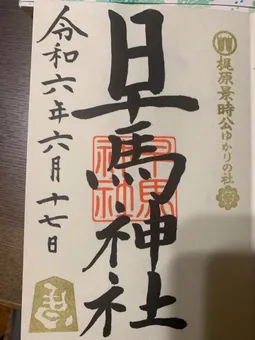 梶原景時公ゆかりの社
早馬神社
早馬
神社
令和六年六月十七日